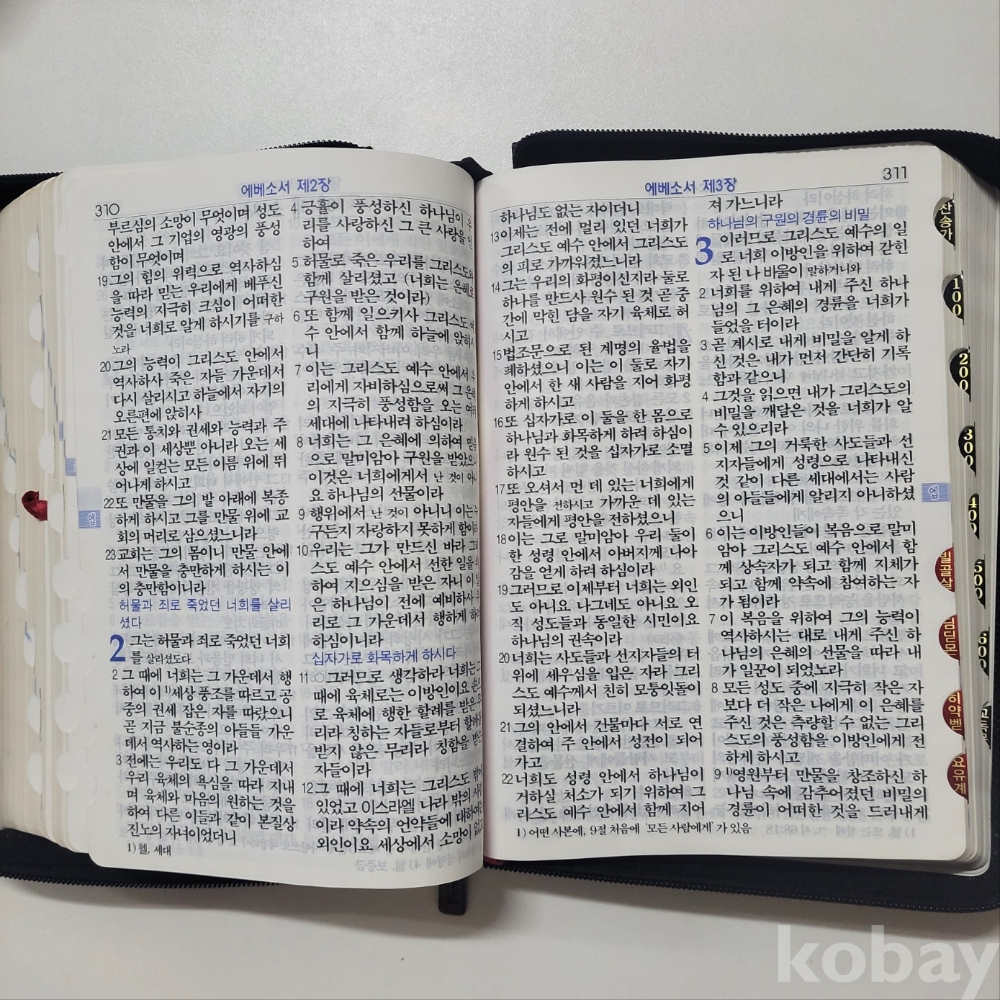 310
에베소서 제2장
부르심의 소망이 무엇이며 성도
안에서 그 기업의 영광의 풍성
함이 무엇이며
19 그의 힘의 위력으로 역사하심
을 따라 믿는 우리에게 베푸신
능력의 지극히 크심이 어떠한
것을 너희로 알게 하시기를 구하
노라
20 그의 능력이 그리스도 안에서
역사하사 죽은 자들 가운데서
다시 살리시고 하늘에서 자기의
오른편에 앉히사
21 모든 통치와 권세와 능력과 주
권과 이 세상뿐 아니라 오는 세
상에 일컫는 모든 이름 위에 뛰
어나게 하시고
22 또 만물을 그의 발 아래에 복종
하게 하시고 그를 만물 위에 교
회의 머리로 삼으셨느니라
23 교회는 그의 몸이니 만물 안에
서 만물을 충만하게 하시는 이
의 충만함이니라
허물과 죄로 죽었던 너희를 살리
셨다
2 그는 허물과 죄로 죽었던 너희
를 살리셨도다
2 그 때에 너희는 그 가운데서 행
하여 이 1)세상 풍조를 따르고 공
중의 권세 잡은 자를 따랐으니
곧 지금 불순종의 아들들 가운
데서 역사하는 영이라
3 전에는 우리도 다 그 가운데서
우리 육체의 욕심을 따라 지내
며 육체와 마음의 원하는 것을
하여 다른 이들과 같이 본질상
진노의 자녀이었더니
1) 헬, 세대
4 긍휼이 풍성하신 하나님이 우
리를 사랑하신 그 큰 사랑을 인
하여
5 허물로 죽은 우리를 그리스도와
함께 살리셨고 (너희는 은혜로
구원을 받은 것이라)
6 또 함께 일으키사 그리스도 예
수 안에서 함께 하늘에 앉히시
니
7 이는 그리스도 예수 안에서 우
리에게 자비하심으로써 그 은혜
의 지극히 풍성함을 오는 여러
세대에 나타내려 하심이라
8 너희는 그 은혜에 의하여 믿음
으로 말미암아 구원을 받았으니
이것은 너희에게서 난 것이 아니
요 하나님의 선물이라
9 행위에서 난 것이 아니니 이는 누
구든지 자랑하지 못하게 함이라
10 우리는 그가 만드신 바라 그리
스도 예수 안에서 선한 일을 위
하여 지으심을 받은 자니 이 일
은 하나님이 전에 예비하사 우
리로 그 가운데서 행하게 하려
하심이니라
십자가로 화목하게 하시다
11 그러므로 생각하라 너희는 그
때에 육체로는 이방인이요 손으
로 육체에 행한 할례를 받은 무
리라 칭하는 자들로부터 할례를
받지 않은 무리라 칭함을 받는
자들이라
12 그 때에 너희는 그리스도 밖에
있었고 이스라엘 나라 밖의 사람
이라 약속의 언약들에 대하여는
외인이요 세상에서 소망이 없고
311
에베소서 제3장
하나님도 없는 자이더니
13 이제는 전에 멀리 있던 너희가
그리스도 예수 안에서 그리스도
의 피로 가까워졌느니라
14 그는 우리의 화평이신지라 둘로
하나를 만드사 원수 된 것 곧 중
간에 막힌 담을 자기 육체로 허
시고
15 법조문으로 된 계명의 율법을
폐하셨으니 이는 이 둘로 자기
안에서 한 새 사람을 지어 화평
하게 하시고
16 또 십자가로 이 둘을 한 몸으로
하나님과 화목하게 하려 하심이
라 원수 된 것을 십자가로 소멸
하시고
17 또 오셔서 먼 데 있는 너희에게
평안을 전하시고 가까운 데 있는
자들에게 평안을 전하셨으니
18 이는 그로 말미암아 우리 둘이
한 성령 안에서 아버지께 나아
감을 얻게 하려 하심이라
19 그러므로 이제부터 너희는 외인
도 아니요 나그네도 아니요 오
직 성도들과 동일한 시민이요
하나님의 권속이라
20 너희는 사도들과 선지자들의 터
위에 세우심을 입은 자라 그리
스도 예수께서 친히 모퉁잇돌이
되셨느니라
21 그의 안에서 건물마다 서로 연
결하여 주 안에서 성전이 되어
가고
22 너희도 성령 안에서 하나님이
거하실 처소가 되기 위하여 그
리스도 예수 안에서 함께 지어
1) 어떤 사본에, 9절 처음에 '모든 사람에게'가 있음
져 가느니라
하나님의 구원의 경륜의 비밀
3 이러므로 그리스도 예수의 일
로 너희 이방인을 위하여 갇힌
자 된 나 바울이 말하거니와
2 너희를 위하여 내게 주신 하나
님의 그 은혜의 경륜을 너희가
들었을 터이라
3 곧 계시로 내게 비밀을 알게 하
신 것은 내가 먼저 간단히 기록
함과 같으니
4 그것을 읽으면 내가 그리스도의
비밀을 깨달은 것을 너희가 알
수 있으리라
5 이제 그의 거룩한 사도들과 선
지자들에게 성령으로 나타내신
것 같이 다른 세대에서는 사람
의 아들들에게 알리지 아니하셨
으니
6 이는 이방인들이 복음으로 말미
암아 그리스도 예수 안에서 함
께 상속자가 되고 함께 지체가
되고 함께 약속에 참여하는 자
가 됨이라
7 이 복음을 위하여 그의 능력이
역사하시는 대로 내게 주신 하
나님의 은혜의 선물을 따라 내
가 일꾼이 되었노라
8 모든 성도 중에 지극히 작은 자
보다 더 작은 나에게 이 은혜를
주신 것은 측량할 수 없는 그리
스도의 풍성함을 이방인에게 전
하게 하시고
9 1)영원부터 만물을 창조하신 하
나님 속에 감추어졌던 비밀의
경륜이 어떠한 것을 드러내게
찬송가
100
200
300
400
500
600
빌골살
히약벧
요유계
엡
엡
kobay